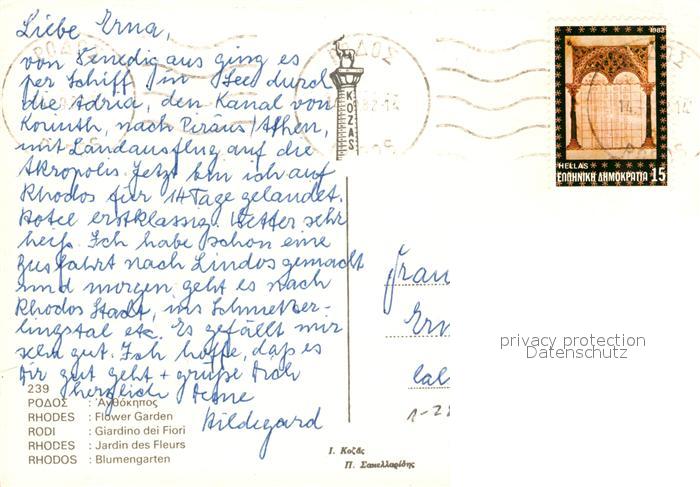 Liebe Erna,
von Venedig aus ging es
per Schiff in See durch
die Adria, den Kanal von
Korinth, nach Piräus/Athen,
mit Landausflug auf die
Akropolis. Jetzt bin ich auf
Rhodos für 14 Tage gelandet.
Hotel erstklassig. Wetter sehr
heiß. Ich habe schon eine
Busfahrt nach Lindos gemacht
und morgen geht es nach
Rhodos Stadt, ins Schmetter-
lingstal etc. Es gefällt mir
sehr gut. Ich hoffe, daß es
Dir gut geht + grüße Dich
herzlich Deine
Hildegard
239
ΡΟΔΟΣ : Ἀνθόκηπος
RHODES : Flower Garden
RODI : Giardino dei Fiori
RHODES : Jardin des Fleurs
RHODOS : Blumengarten
KOZAS
Ι. Κοζᾶς
Π. Σακελλαρίδης
ΡΟΔΟΣ
1982
HELLAS
ΕΛΛΗΝΙΚΗ ΔΗΜΟΚΡΑΤΙΑ 15
Frau
privacy protection
Datenschutz